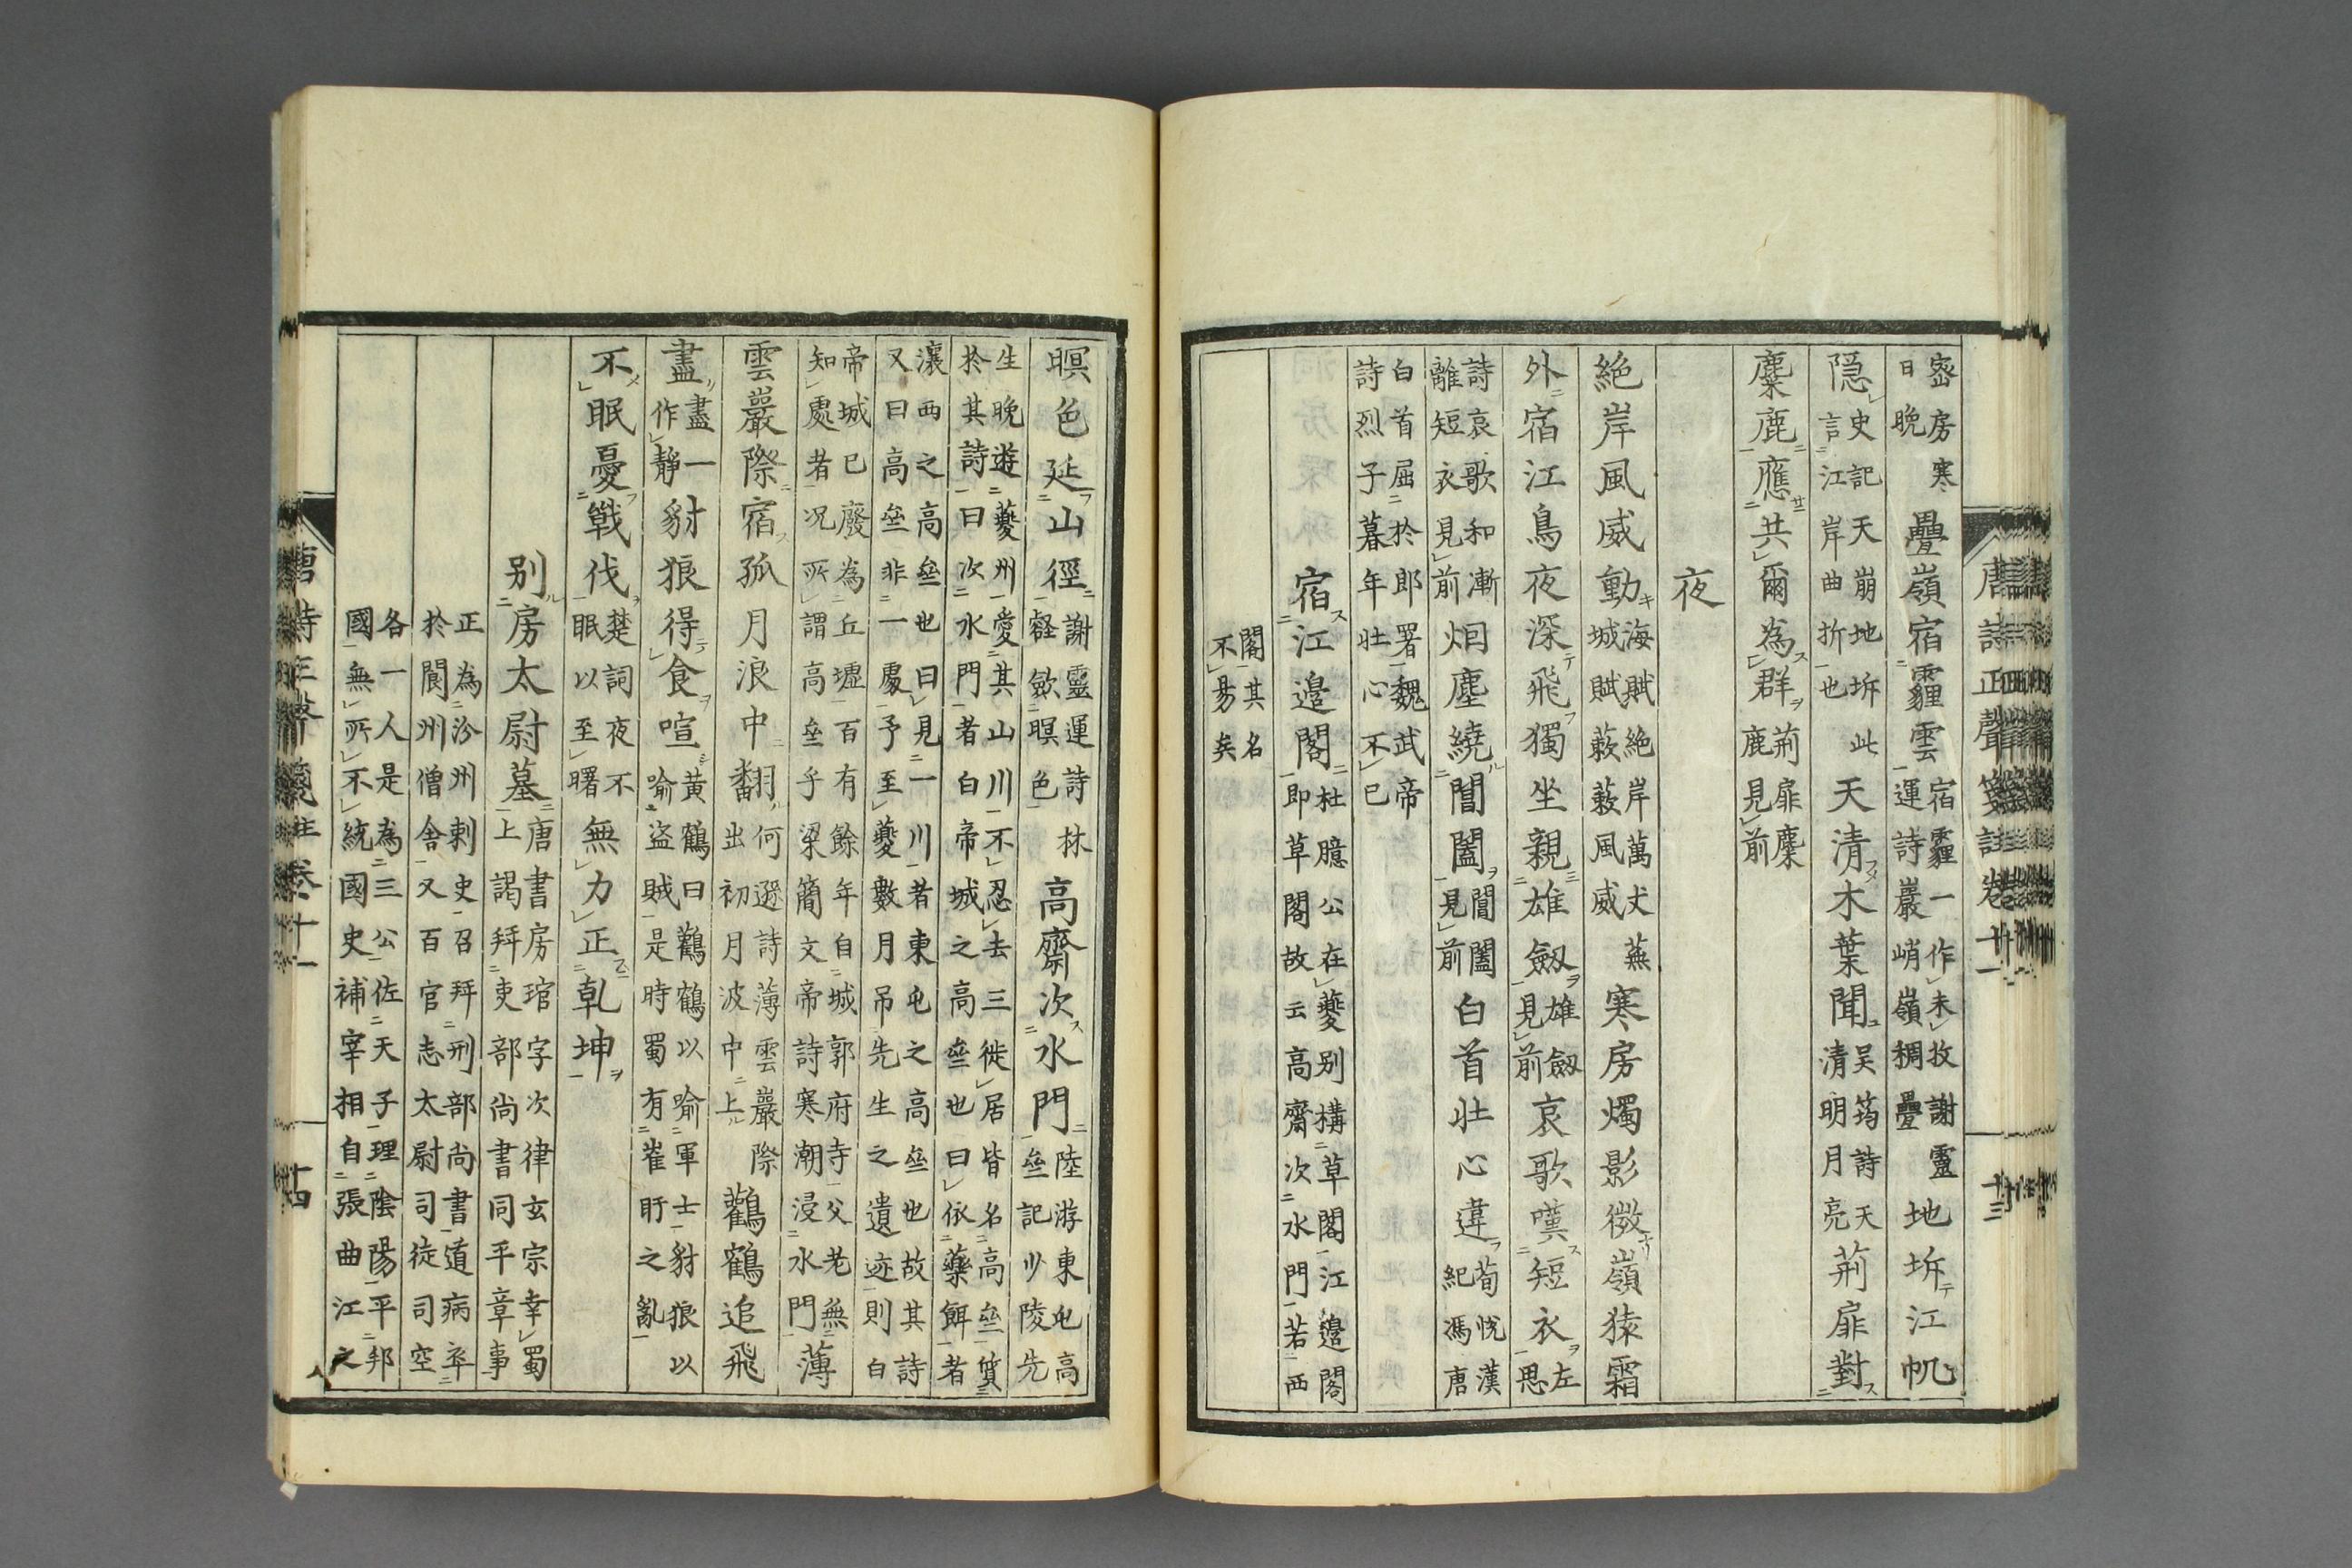 密房寒
日晚
疊嶺宿霾雲
宿霾一作未攷謝靈
運詩巖峭嶺稠疊
地坼江帆
隠
史記天崩地坼此
言江岸曲折也
天清木葉聞
吴筠詩天
清明月亮
荊扉對
麋鹿應共爾為群
荊扉麋
鹿見前
夜
絶岸風威動
海賦絶岸萬丈蕪
城賦蔌蔌風威
寒房燭影微嶺猿霜
外宿江鳥夜深飛獨坐親雄劔
雄劔
見前
哀歌嘆短衣
左
思
詩哀歌和漸
離短衣見前
烟塵繞閶闔
閶闔
見前
白首壯心違
荀悅漢
紀馮唐
白首屈於郎署魏武帝
詩烈子暮年壯心不已
宿江邉閣
杜臆公在夔别構草閣江邉閣
即草閣故云高齋次水門若西
閣其名
不易矣
唐詩正聲箋註卷十一
十三
暝色延山徑
謝靈運詩林
壑歛暝色
高齋次水門
陸游東屯高
壘記少陵先
生晚遊夔州愛其山川不忍去三徙居皆名高壘質
於其詩曰次水門者白帝城之高壘也曰依藥餌者
瀼西之高壘也曰見一川者東屯之高壘也故其詩
又曰高壘非一處予至夔數月吊先生之遺迹則白
帝城已廢為丘墟百有餘年自城郭府寺父老無
知處者况所謂高壘乎梁簡文帝詩寒潮浸水門
薄
雲巖際宿孤月浪中翻
何遜詩薄雲巖際
出初月波中上
鸛鶴追飛
盡
盡一
作靜
豺狼得食喧
黄鶴曰鸛鶴以喻軍士豺狼以
喻盗賊是時蜀有崔旰之亂
不眠憂戰伐
楚詞夜不
眠以至曙
無力正乾坤
别房太尉墓
唐書房琯字次律玄宗幸蜀
上謁拜吏部尚書同平章事
正為汾州刺史召拜刑部尚書道病卒
於閬州僧舍又百官志太尉司徒司空
各一人是為三公佐天子理隂陽平邦
國無所不統國史補宰相自張曲江之
唐詩正聲箋註卷十一
十四